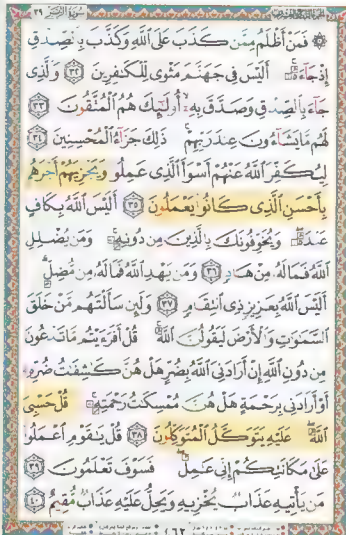 سورة الزمر ٣٩
۞ فَمَنْ أَظْلَمُ مِمَّن كَذَبَ عَلَى ٱللَّهِ وَكَذَّبَ بِٱلصِّدْقِ
إِذْ جَآءَهُۥٓ أَلَيْسَ فِى جَهَنَّمَ مَثْوًى لِّلْكَٰفِرِينَ ٣٢ وَٱلَّذِى
جَآءَ بِٱلصِّدْقِ وَصَدَّقَ بِهِۦٓ أُو۟لَٰٓئِكَ هُمُ ٱلْمُتَّقُونَ ٣٣
لَهُم مَّا يَشَآءُونَ عِندَ رَبِّهِمْ ذَٰلِكَ جَزَآءُ ٱلْمُحْسِنِينَ ٣٤
لِيُكَفِّرَ ٱللَّهُ عَنْهُمْ أَسْوَأَ ٱلَّذِى عَمِلُوا۟ وَيَجْزِيَهُمْ أَجْرَهُم
بِأَحْسَنِ ٱلَّذِى كَانُوا۟ يَعْمَلُونَ ٣٥ أَلَيْسَ ٱللَّهُ بِكَافٍ
عَبْدَهُۥ وَيُخَوِّفُونَكَ بِٱلَّذِينَ مِن دُونِهِۦ وَمَن يُضْلِلِ
ٱللَّهُ فَمَا لَهُۥ مِنْ هَادٍ ٣٦ وَمَن يَهْدِ ٱللَّهُ فَمَا لَهُۥ مِن مُّضِلٍّ
أَلَيْسَ ٱللَّهُ بِعَزِيزٍ ذِى ٱنتِقَامٍ ٣٧ وَلَئِن سَأَلْتَهُم مَّنْ خَلَقَ
ٱلسَّمَٰوَٰتِ وَٱلْأَرْضَ لَيَقُولُنَّ ٱللَّهُ قُلْ أَفَرَءَيْتُم مَّا تَدْعُونَ
مِن دُونِ ٱللَّهِ إِنْ أَرَادَنِىَ ٱللَّهُ بِضُرٍّ هَلْ هُنَّ كَٰشِفَٰتُ ضُرِّهِۦٓ
أَوْ أَرَادَنِى بِرَحْمَةٍ هَلْ هُنَّ مُمْسِكَٰتُ رَحْمَتِهِۦ قُلْ حَسْبِىَ
ٱللَّهُ عَلَيْهِ يَتَوَكَّلُ ٱلْمُتَوَكِّلُونَ ٣٨ قُلْ يَٰقَوْمِ ٱعْمَلُوا۟
عَلَىٰ مَكَانَتِكُمْ إِنِّى عَٰمِلٌ فَسَوْفَ تَعْلَمُونَ ٣٩
مَن يَأْتِيهِ عَذَابٌ يُخْزِيهِ وَيَحِلُّ عَلَيْهِ عَذَابٌ مُّقِيمٌ ٤٠
٤٦٢